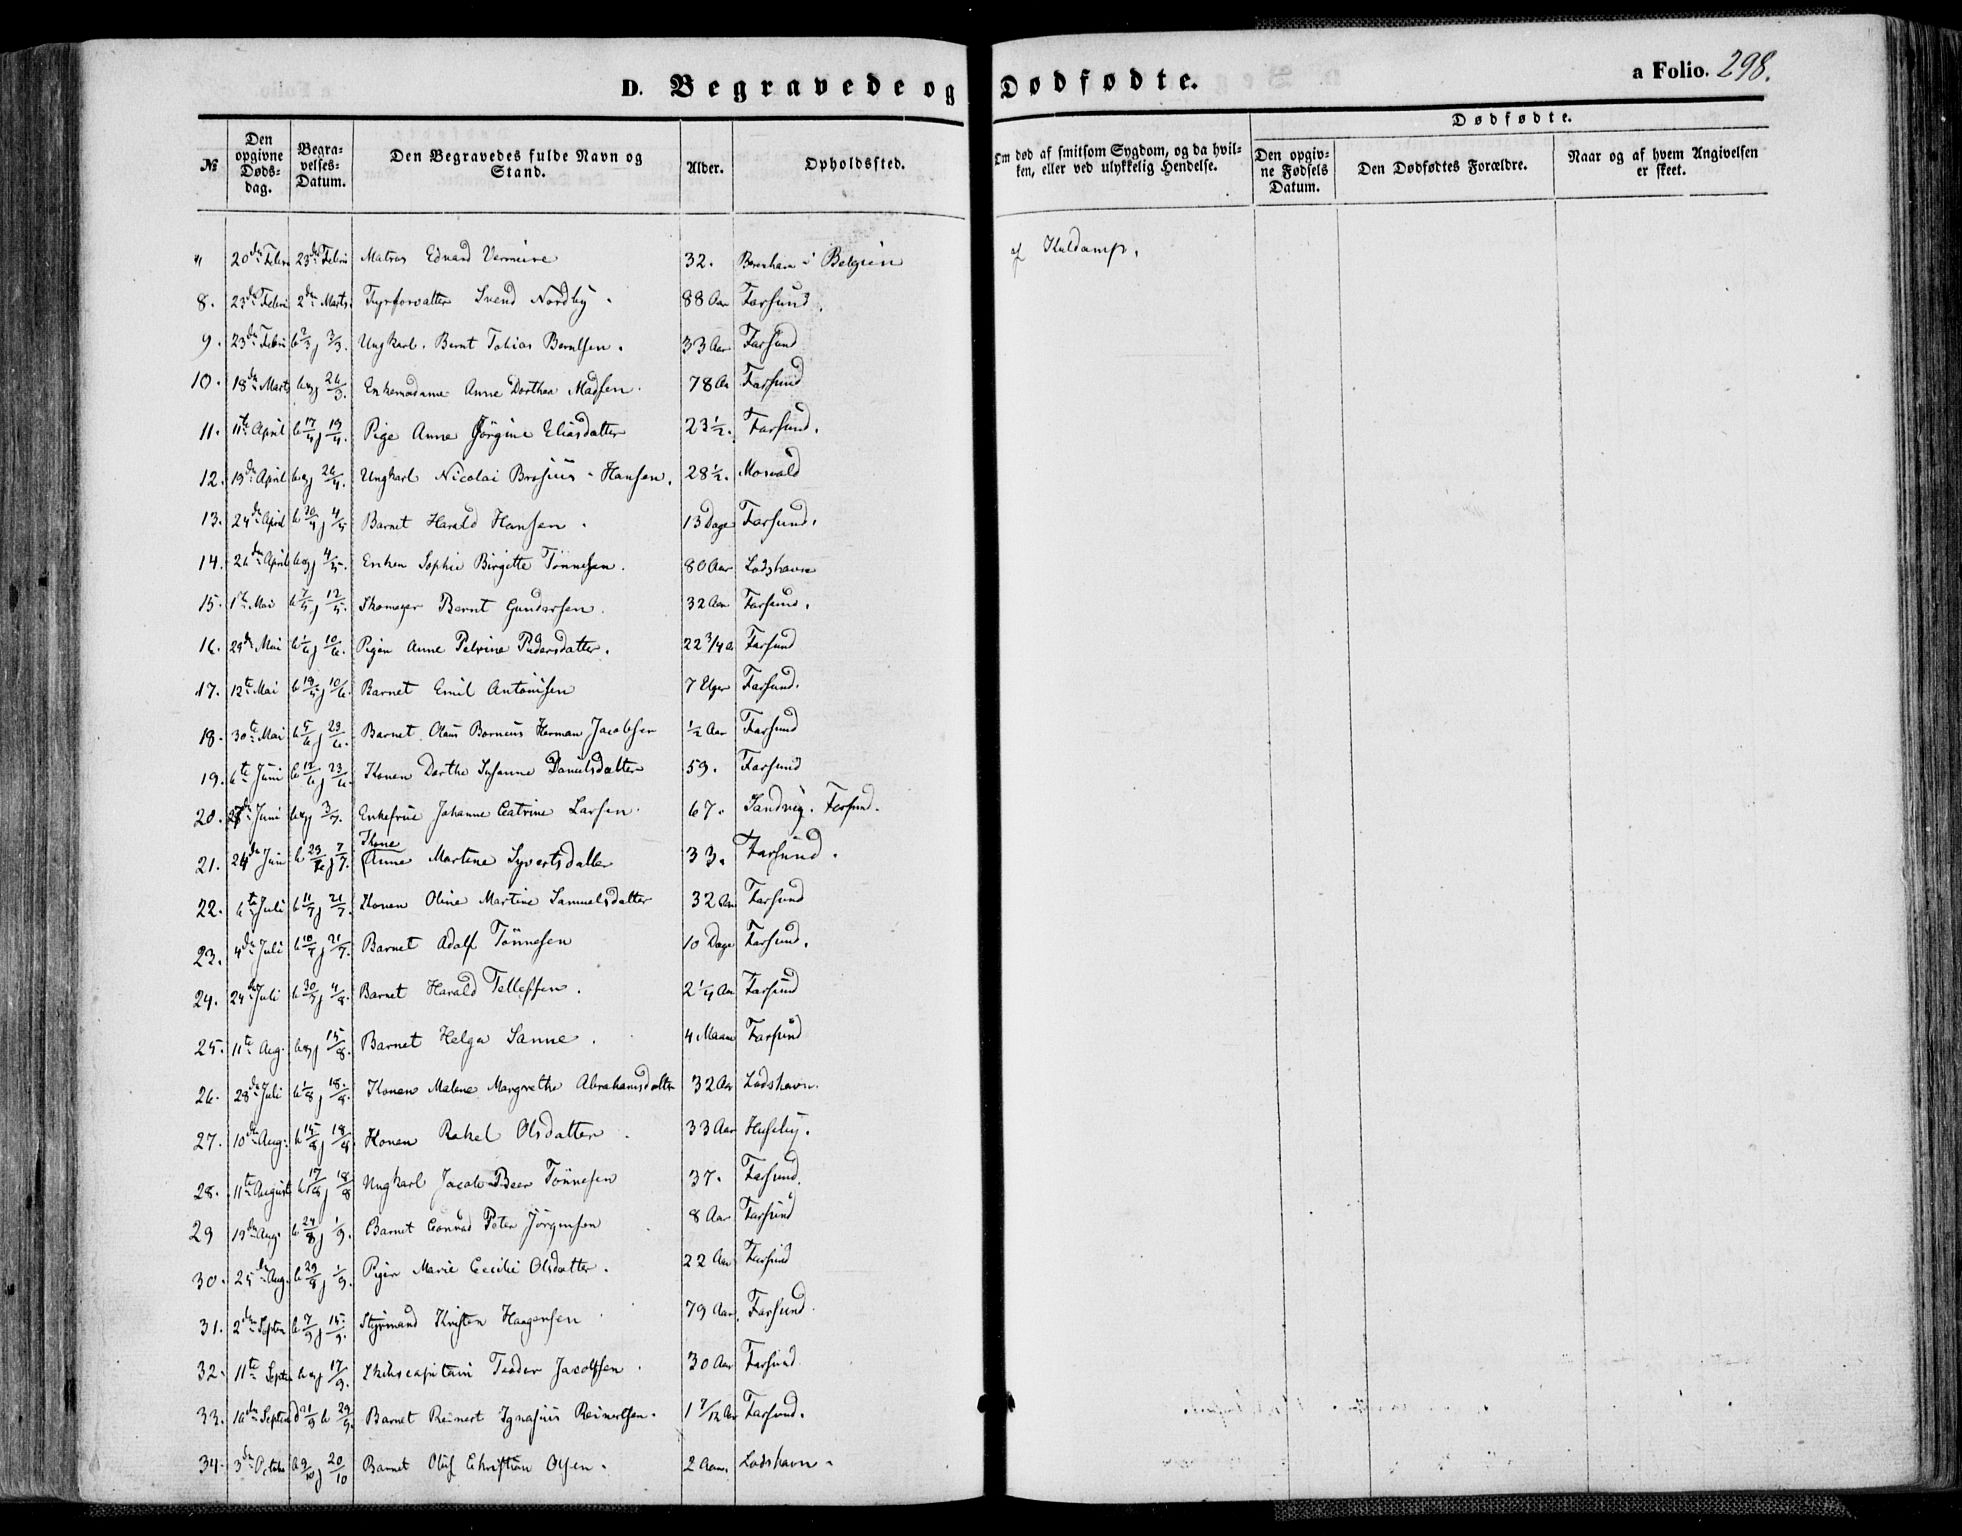 D. Begravede og Dødfødte.
a Folio. 298.
№ | Den opgivne Døds-dag. | Begra-velses-Datum. | Den Begravedes fulde Navn og Stand. | Alder. | Opholdssted. | Om død af smitsom Sygdom, og da hvil-ken, eller ved ulykkelig Hendelse. | Dødfødte. | Den opgiv-ne Fødsels Datum. | Den Dødfødtes Forældre. | Naar og af hvem Angivelsen er skeet.
" | 20de Febr | 23de Febr | Matros Eduard Vermeire | 32. | i Belgien | af Kuldamp.
8. | 23de Febr | 2den Marts | Fyrforvalter Svend Nordby. | 88 Aar | Farsund.
9. | 23de Febr | b 2/3 j 3/3. | Ungkarl. Bernt Tobias Berntsen. | 33 Aar | Farsund
10. | 18de Marts | b og j 26/3. | Enkemadame Anne Dorthea Madsen. | 78 Aar | Farsund
11. | 11te April | b 17/4 j 19/4. | Pige Anne Jørgine Eliasdatter | 23 1/2. | Farsund.
12. | 19de April | b og j 26/4. | Ungkarl Nicolai Brosius Hansen. | 28 1/2. | Mosvald
13. | 24de April | b 30/4 j 4/5 | Barnet Harald Hansen. | 13 Dage | Farsund.
14. | 26de April | b og j 4/5. | Enken Sophie Birgitte Tønnesen. | 80 Aar | Lodshavn
15. | 1te Mai | b 7/5 j 12/5. | Skomager Bernt Gundersen. | 32 Aar | Farsund.
16. | 29de Mai | b 1/6 j 10/6. | Pigen Anne Petrine Pedersdatter. | 22 3/4 A | Farsund
17. | 12te Mai | b 19/5 j 10/6. | Barnet Emil Antonisen | 7 Uger | Farsund.
18. | 30te Mai | b 5/6 j 23/6. | Barnet Olaus Borneus Herman Jacobsen | 1/2 Aar | Farsund
19. | 6te Juni | b 12/6 j 23/6. | Konen Dorthe Susanne Danielsdatter | 59. | Farsund
20. | 27de Juni | b og j 3/7. | Enkefrue Johanne Catrine Larsen. | 67. | Sandvig. Farsund.
21. | 24de Juni | b 29/6 j 7/7. | Kone Anne Martine Syvertsdatter | 33. | Farsund.
22. | 6te Juli | b 11/7 j 21/7. | Konen Oline Martine Samuelsdatter | 32 Aar | Farsund
23. | 4de Juli | b 10/7 j 21/7. | Barnet Adolf Tønnesen | 10 Dage | Farsund.
24. | 24de Juli | b 30/7 j 4/8. | Barnet Harald Tellefsen. | 2 1/4 Aar | Farsund
25. | 11te Aug. | b og j 15/8. | Barnet Helga Sanne. | 4 Maan | Farsund
26. | 28de Juli | b 1/8 j 18/8. | Konen Malene Margrethe Abrahamsdatter | 32 Aar | Lodshavn.
27. | 10de Aug. | b 15/8 j 18/8 | Konen Rakel Olsdatter. | 33 Aar | Huseby.
28. | 11te August | b 17/8 j 18/8 | Ungkarl Jacob Beer Tønnesen | 37. | Farsund.
29 | 19de Aug. | b 24/8 j 1/9. | Barnet Conrad Peter Jørgensen | 8 Aar | Farsund
30. | 25de Aug. | b 29/8 j 1/9. | Pigen Marie Cecilie Olsdatter. | 22 Aar | Farsund
31. | 2den Septen | b 7/9 j 15/9. | Styrmand Kristen Haagensen | 79 Aar. | Farsund.
32. | 11te Septen | b og j 17/9. | Skibscapitain Teodor Jacobsen. | 30 Aar | Farsund
33. | 16de Septen | 21/9 b 29/9. | Barnet Reinert Ignasius Reinertsen. | 1 7/12 Aar | Farsund.
34. | 3de Octob | b 9/10 j 20/10 | Barnet Oluf Christian Olsen. | 2 Aar. | Lodshavn.